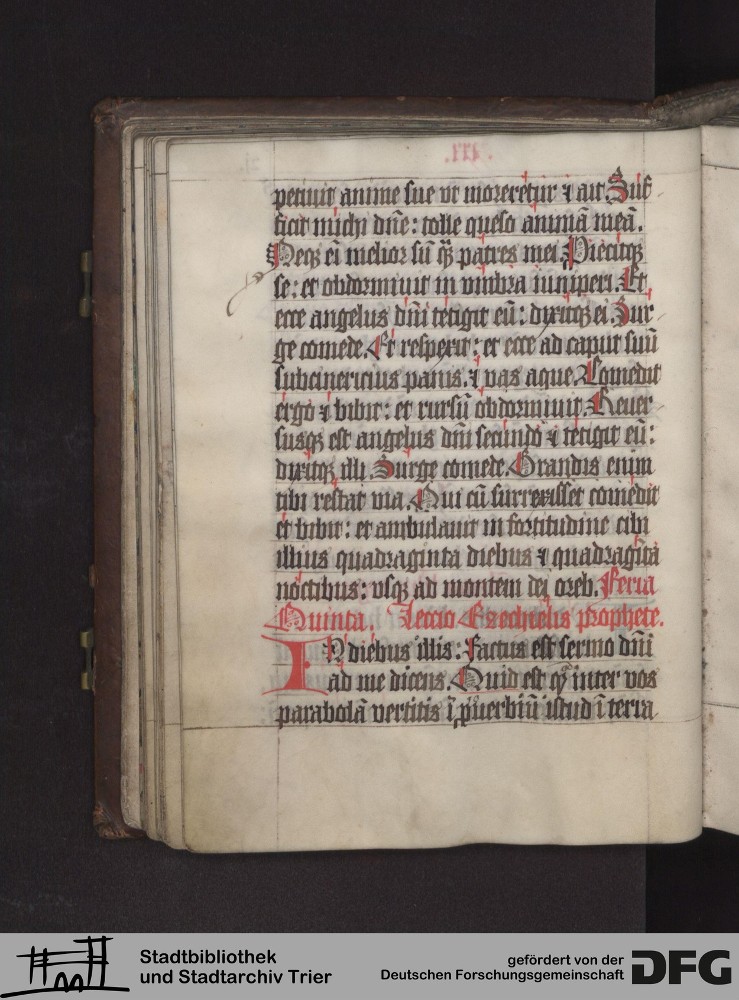 petiuit anime sue vt moreretur ⁊ ait. Suf
ficit michi dn̄e: tolle queso animā meā.
Neqꝫ eī melior sū qꝫ̄ patres mei. Piecitqꝫ
se: et obdormiuit in vmbra iuniperi. Et
ecce angelus dn̄i tetigit eū: dixitqꝫ ei. Sur
ge comede. Et respexit: et ecce ad caput suū
subcinericius panis. ⁊ vas aque. Comedit
ergo ⁊ bibit: et rursū obdormiuit. Reuer
susqꝫ est angelus dn̄i secundo ⁊ tetigit eū:
dixitqꝫ illi. Surge comede. Grandis enim
tibi restat via. Qui cū surrexisset comedit
et bibit: et ambulauit in fortitudine cibi
illius quadraginta diebus ⁊ quadragīta
noctibus: vsqꝫ ad montem dei oreb. Feria
Quinta. Leccio Ezechielis prophete.
IN diebus illis: Factus est sermo dn̄i
ad me dicens. Quid est qꝫ inter vos
parabolā vertitis ī ꝓuerbiū istud ī terra
Stadtbibliothek
und Stadtarchiv Trier
gefördert von der
Deutschen Forschungsgemeinschaft
DFG